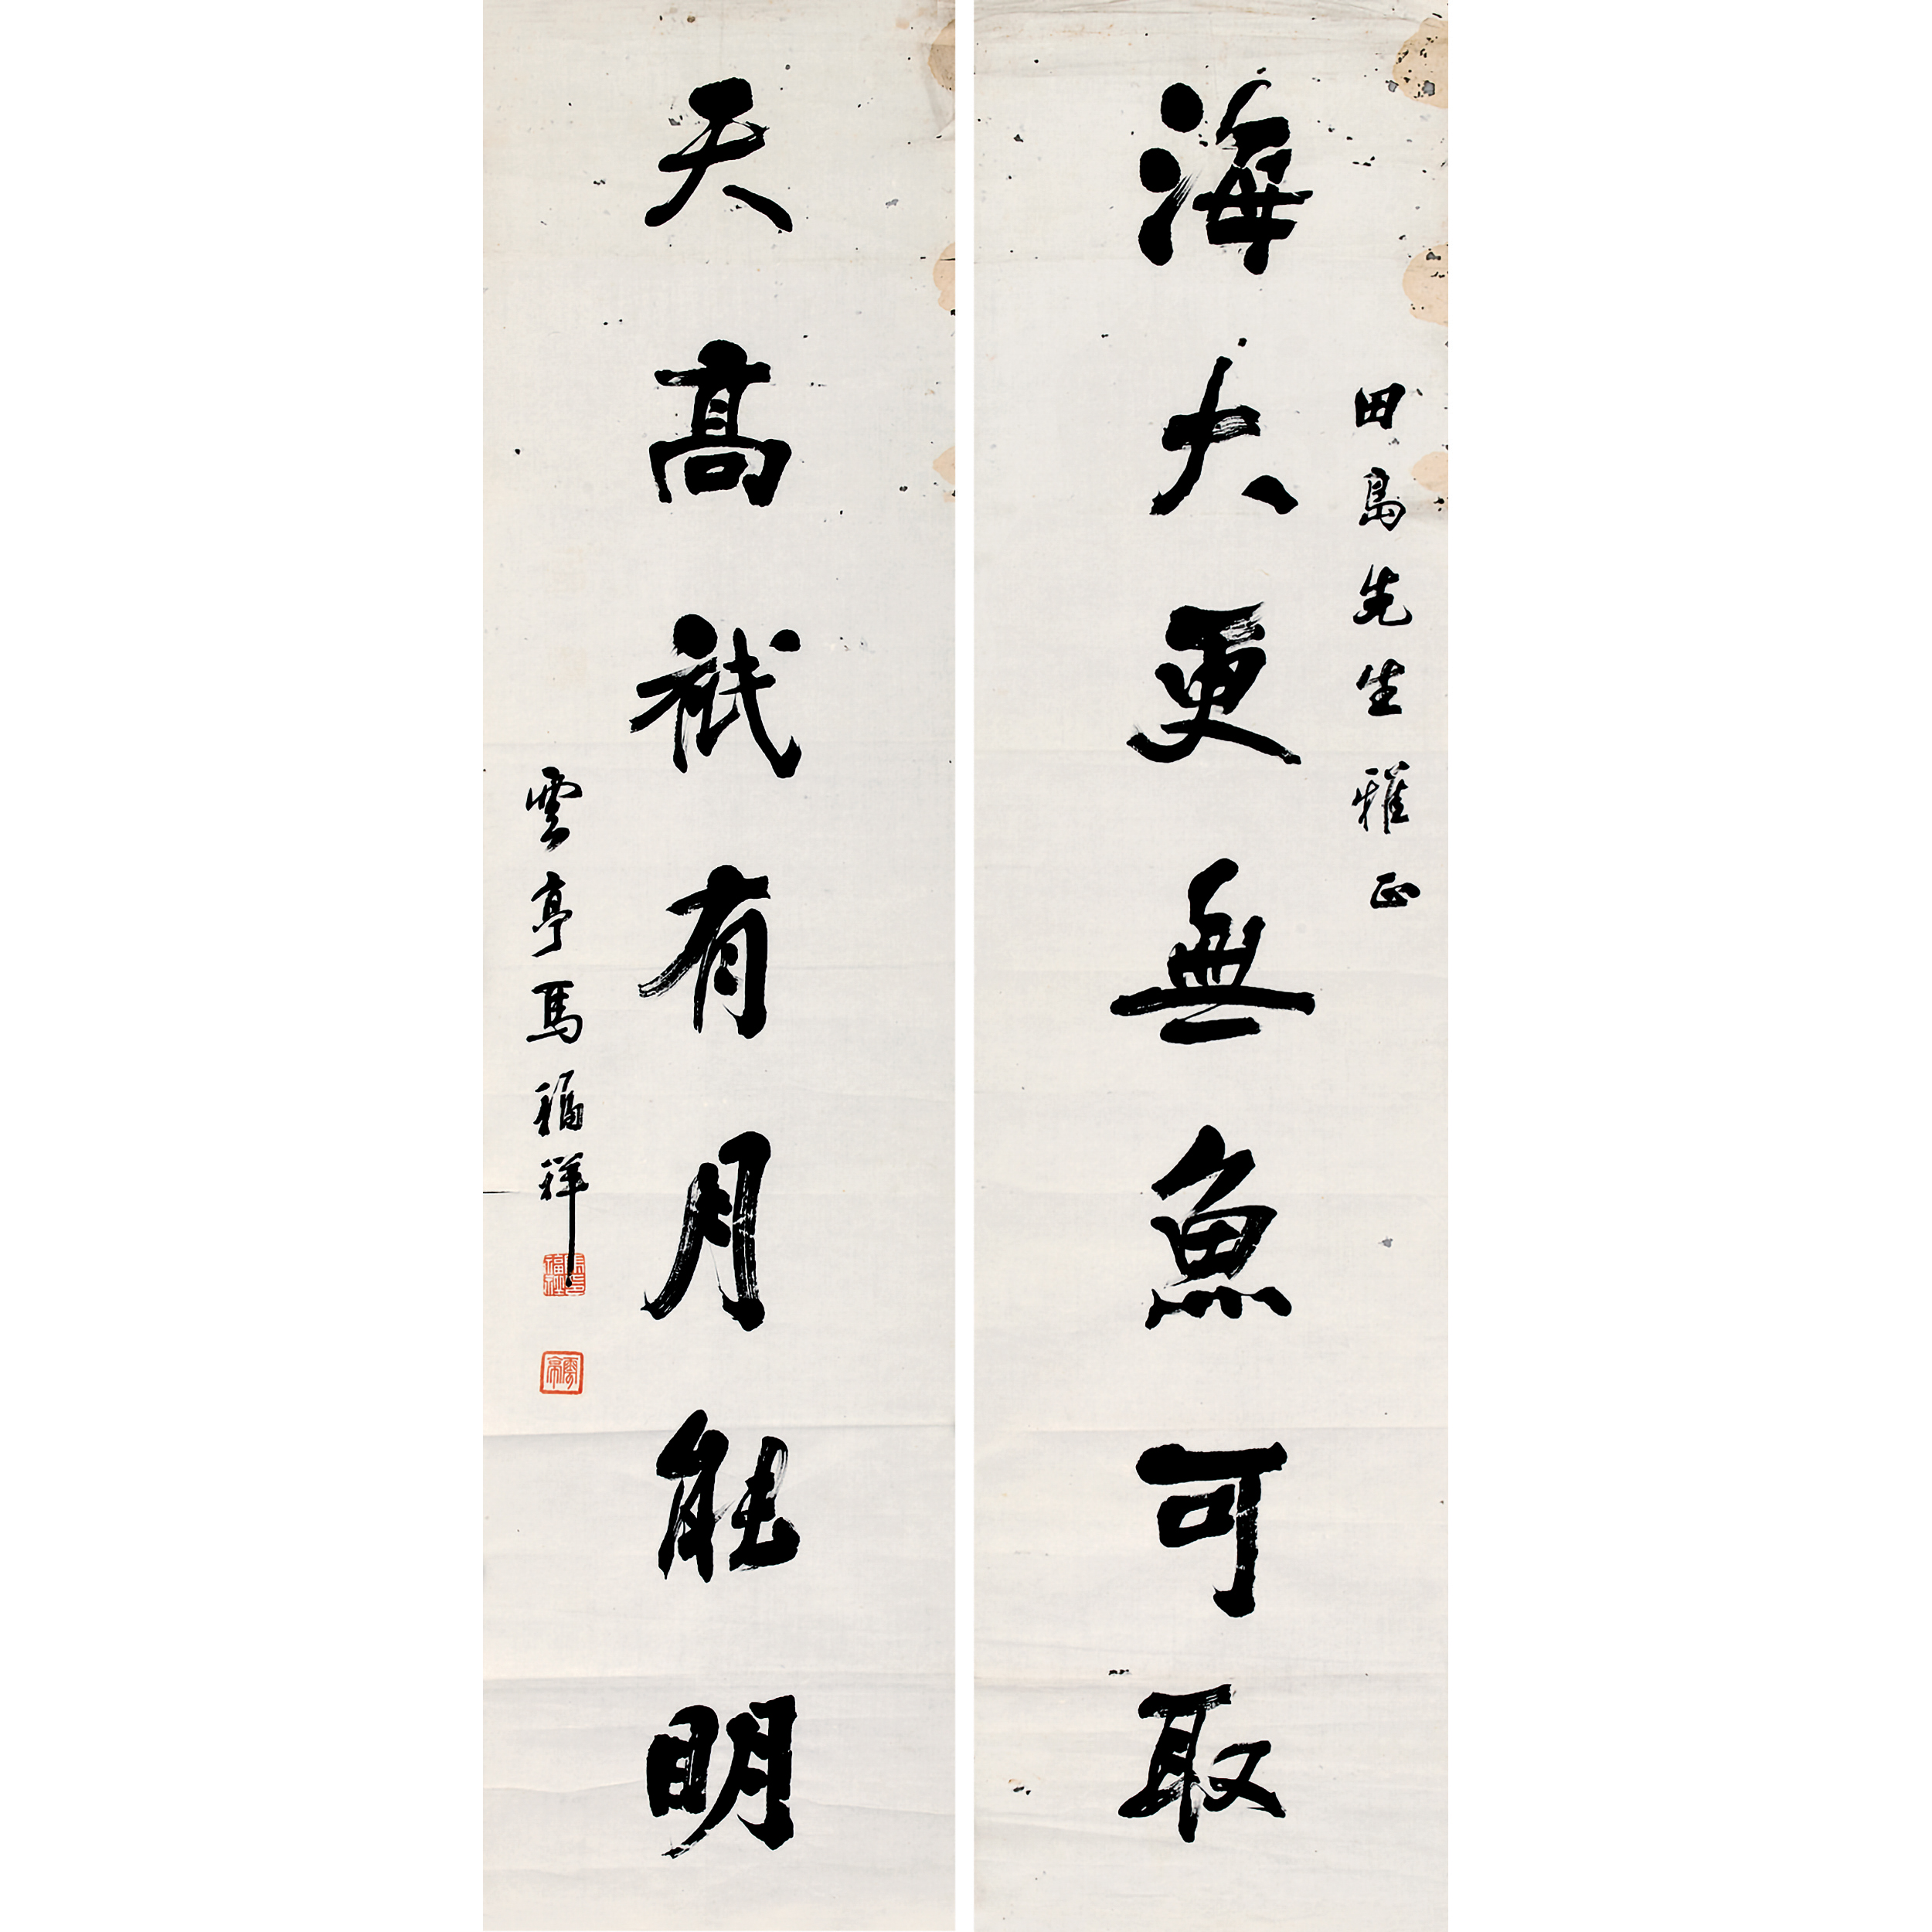 田島先生雅正
海大更無魚可取
天高祇有月能明
雲亭馬福祥
馬福祥
雲亭